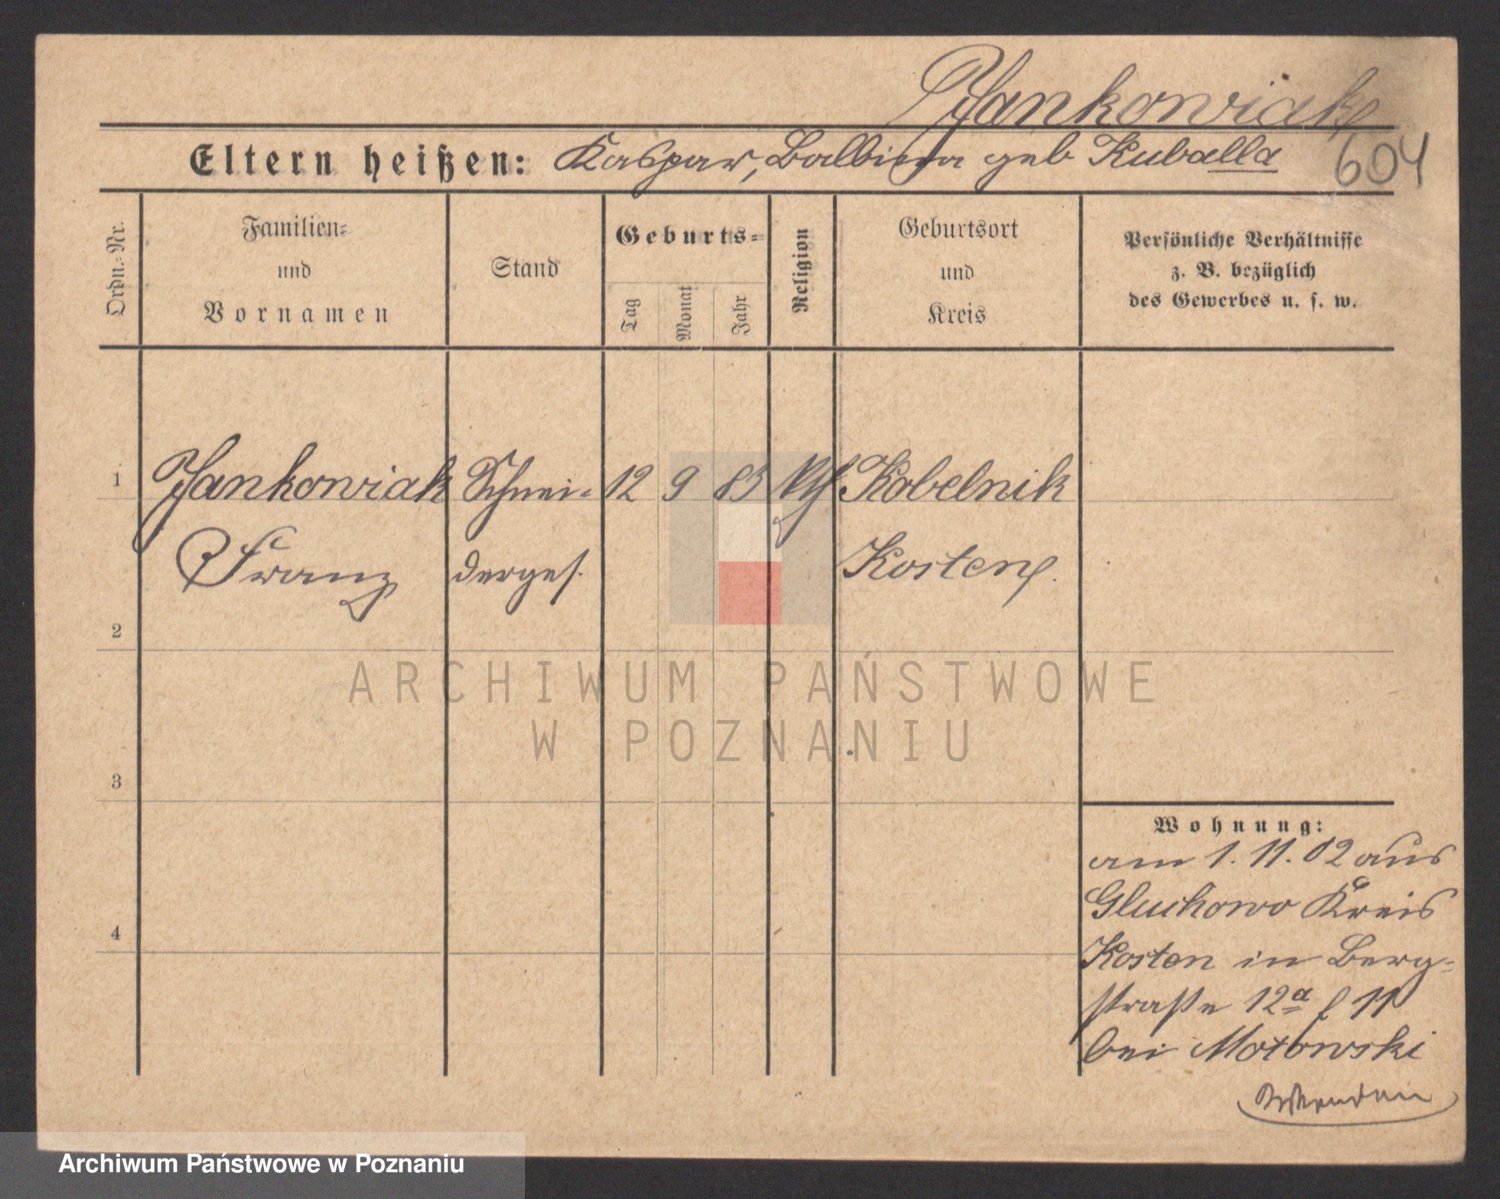 Jankowiak
604
Eltern heißen: Kaspar, Balbina geb Kuballa
Ordn.-Nr.
Familien-
und
Vornamen
Stand
Geburts-
Tag
Monat
Jahr
Religion
Geburtsort
und
Kreis
Persönliche Verhältnisse
z. B. bezüglich
des Gewerbes u. s. w.
1 Jankowiak Schnei- 12 9 83 Kobelnik
Franz derges. Kosten
2
3
4
Wohnung:
am 1. 11. 02 aus
Gluchowo Kreis
Kosten in Berg-
straße 12a 11
bei Motowski
ARCHIWUM PAŃSTWOWE
W POZNANIU
Archiwum Państwowe w Poznaniu